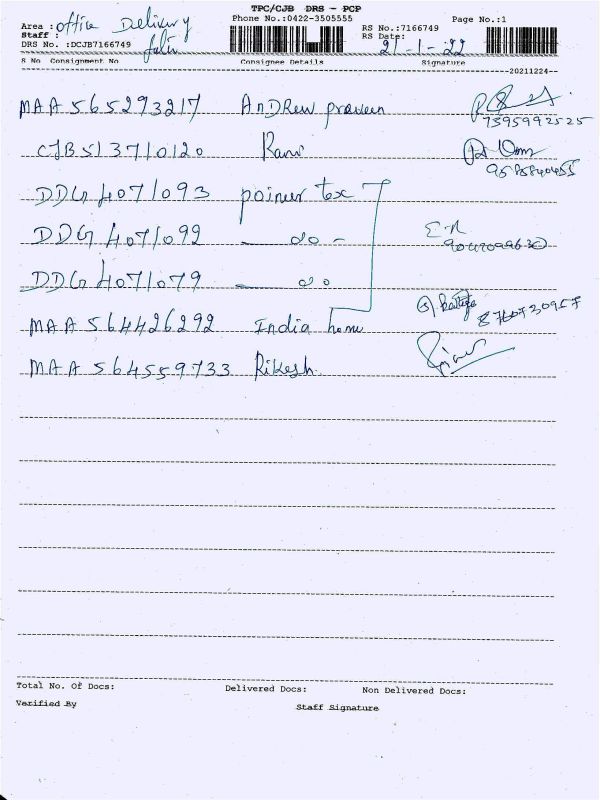 TPC/CJB DRS - PCP
Area : office Delivery Phone No.:0422-3505555 RS No.:7166749 Page No.:1
Staff : RS Date: 21-1-22
DRS No. :DCJB7166749
S No Consignment No Consignee Details Signature
20211224
MAA 565293217 AnDRew praveen
7395992525
CJB513710120 Rani
DDG 4071093 poineer tex
DDG 4071092 — do -
DDG 4071079 — do
MAA 564426292 India home
MAA 564559733 Rikesh
Total No. Of Docs: Delivered Docs: Non Delivered Docs:
Verified By Staff Signature